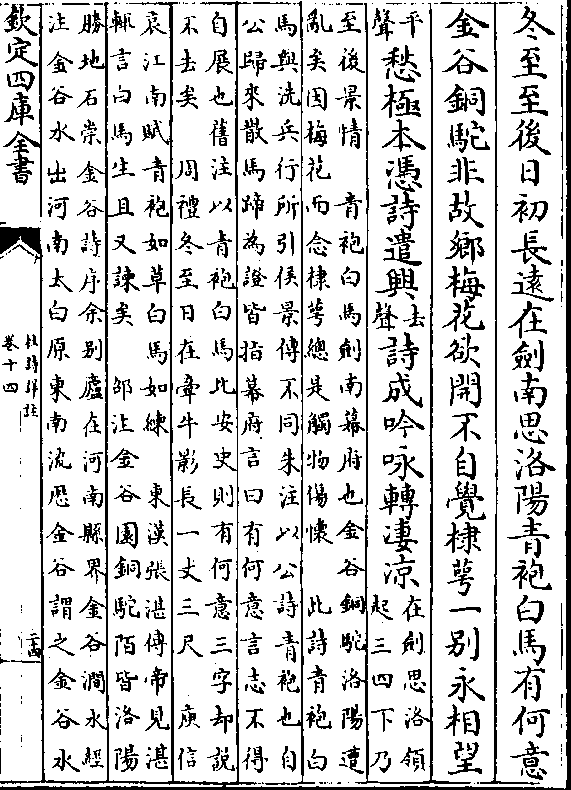 冬至至後日初長遠在劍南思洛陽青袍白馬有何意
金谷銅駝非故鄉梅花欲開不自覺棣萼一别永相望
平聲愁極本憑詩遣興去聲詩成吟咏轉凄凉在劍思洛領起三四下乃
至後景情 青袍白馬劍南幕府也金谷銅駝洛陽遭
亂矣因梅花而念棣萼總是觸物傷懷 此詩青袍白
馬與洗兵行所引侯景傳不同朱注以公詩青袍也自
公歸來散馬蹄為證皆指幕府言曰有何意言志不得
自展也舊注以青袍白馬比安史則有何意三字却説
不去矣 周禮冬至日在牽牛影長一丈三尺 庾信
哀江南賦青袍如草白馬如練 東漢張湛傳帝見湛
輒言白馬生且又諫矣 邵注金谷園銅駝陌皆洛陽
勝地石崇金谷詩序余别廬在河南縣界金谷澗水經
注金谷水出河南太白原東南流歷金谷謂之金谷水
欽定四庫全書
杜詩詳註
卷十四
二十四